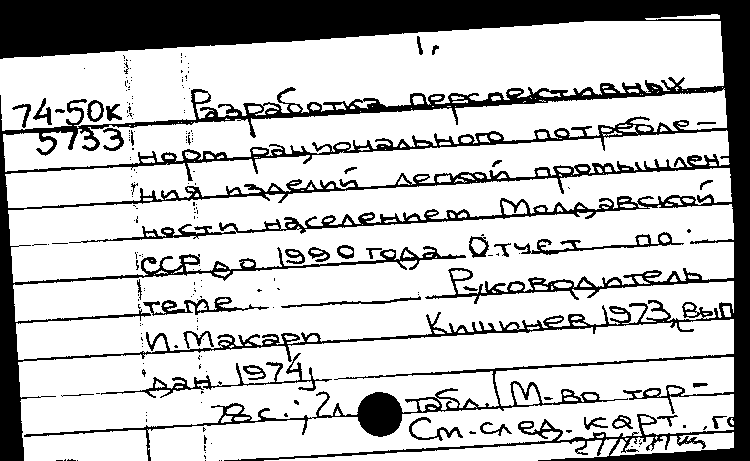 1г.
74-50к Разработка перспективных
5733 норм рационального потребле-
ния изделий легкой промышлен-
ности населением Молдавской
ССР до 1990 года. Отчет по
теме. Руководитель
И. Макари Кишинев, 1973, [вып
дан. 1974]
78 с.; 2л табл. (М-во тор-
См. след. карт.